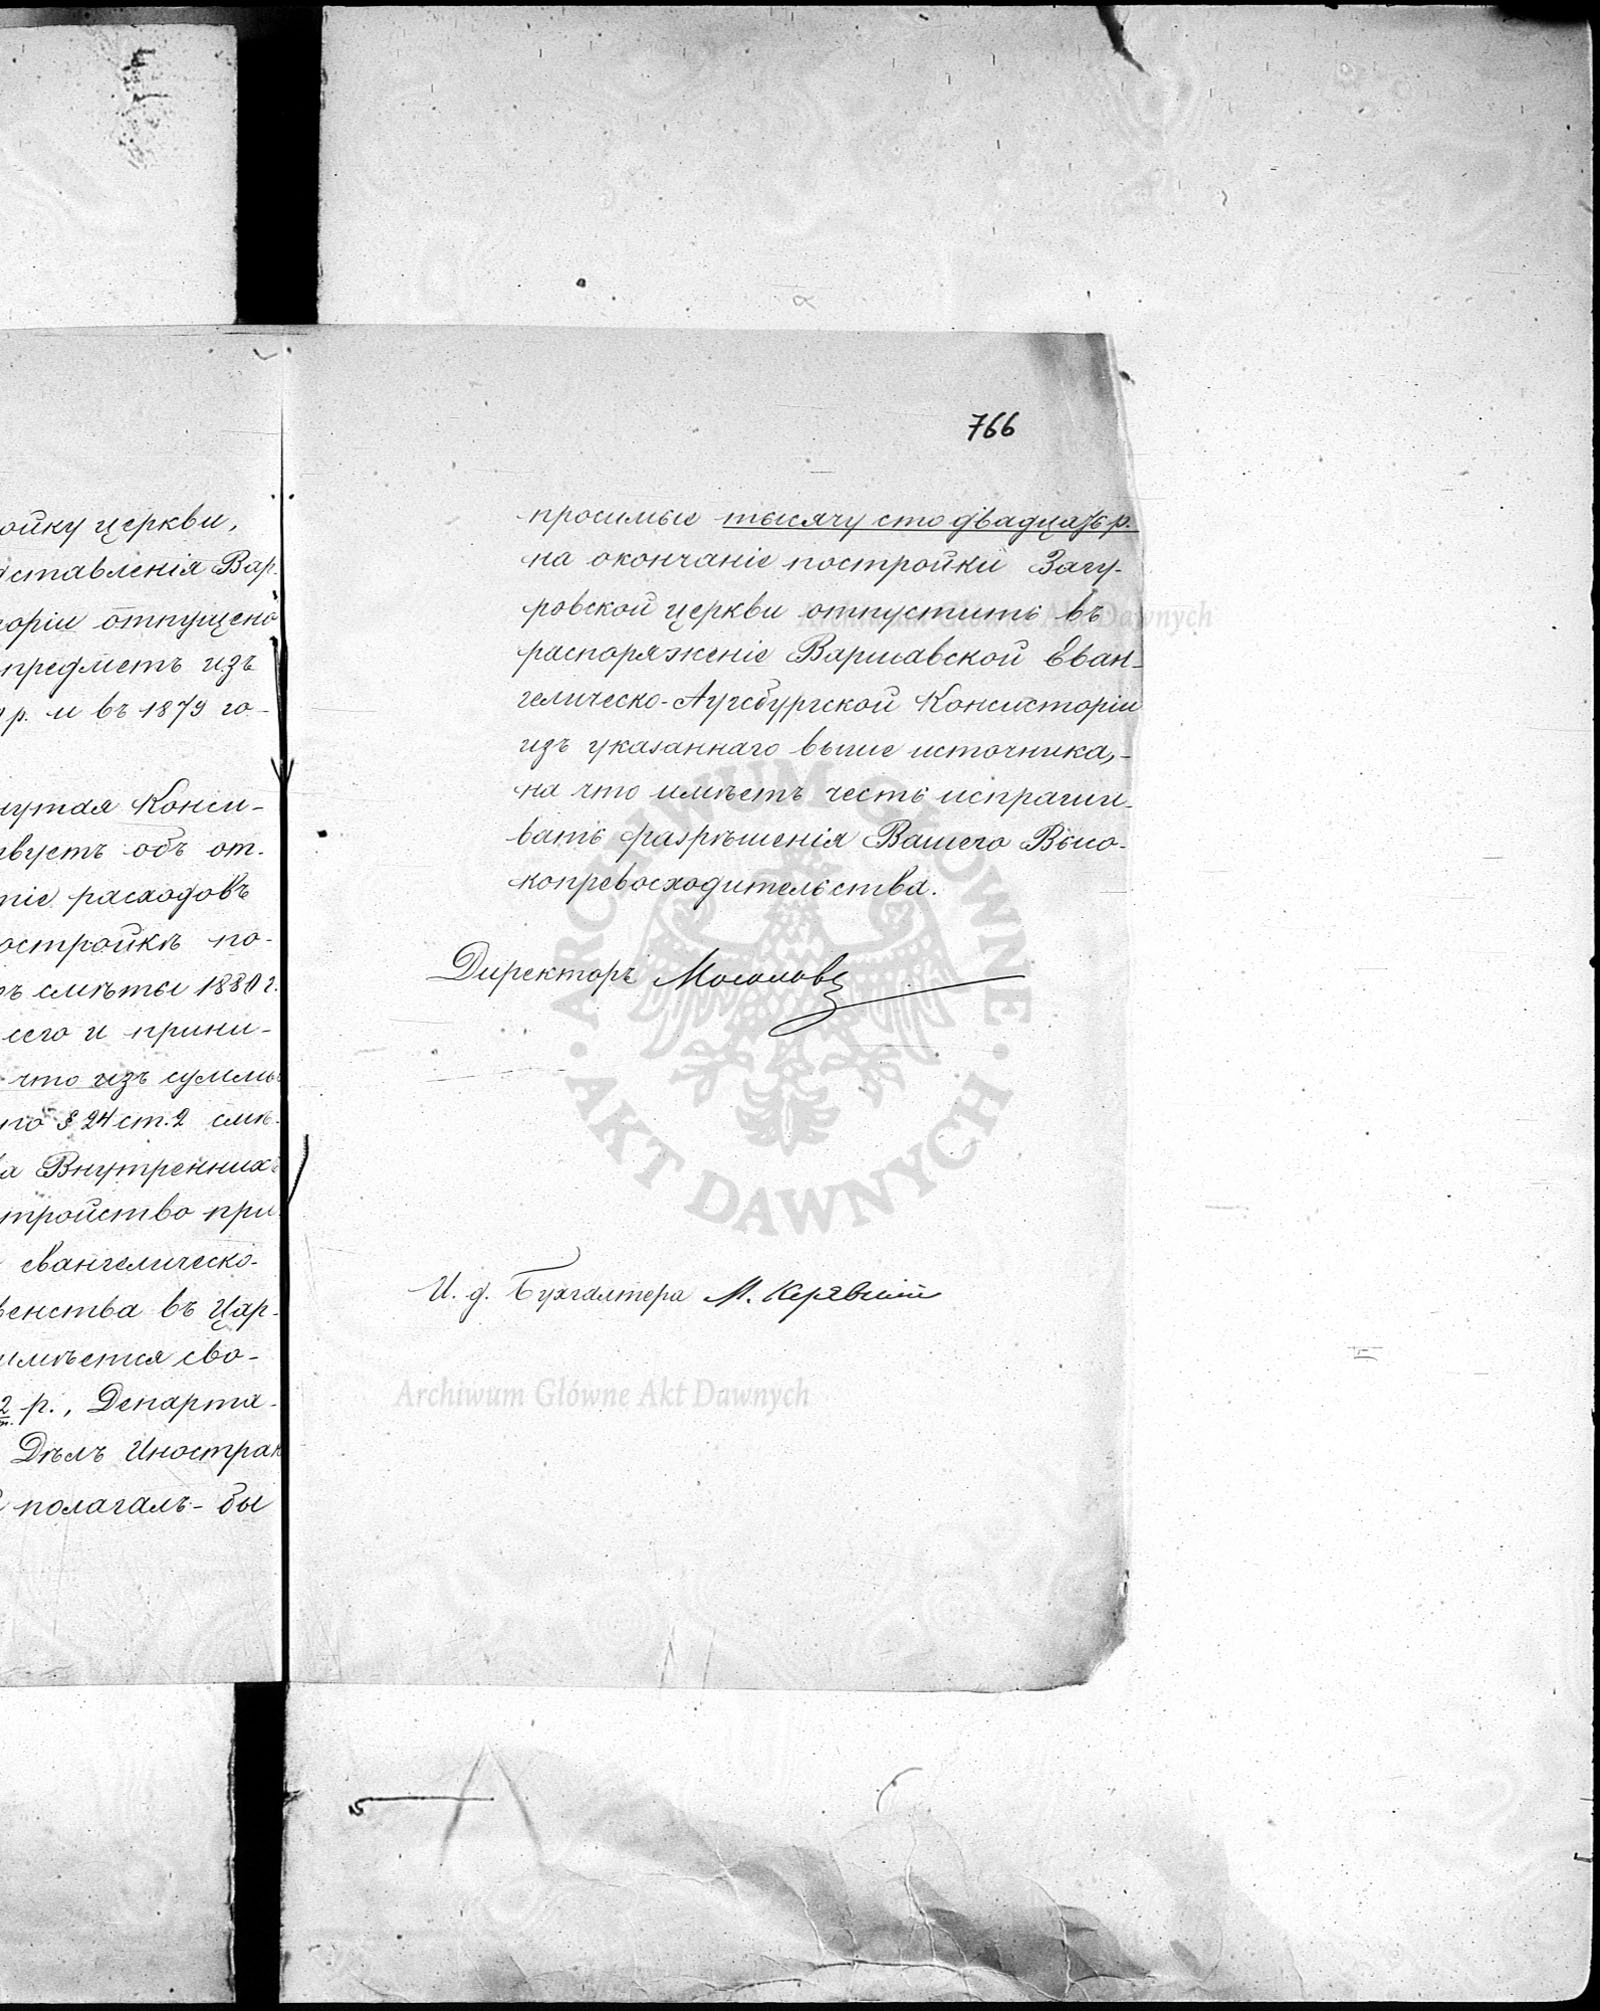 ойку церкви,
дставленія Вар-
торіи отпущено
предметъ изъ
р. и въ 1879 го-
нутая Конси-
твуетъ объ от-
тіе расходовъ
остройкѣ по-
смѣты 1880 г.
сего и прини-
что изъ суммы
по § 24 ст. 2 смѣ-
Внутреннихъ
тройство при-
евангелическо-
венства въ Цар-
имѣется сво-
2 р., Департа-
Дѣлъ Иностран
полагалъ-бы
766
просимые тысячу сто двадцать р.
на окончаніе постройки Загу-
ровской церкви отпустить въ
распоряженіе Варшавской Еван-
гелическо-Аугсбургской Консисторіи
изъ указаннаго выше источника,-
на что имѣетъ честь испраши-
вать разрѣшенія Вашего Высо-
копревосходительства.
Директоръ Мосоловъ
И. д. Бухгалтера М.
Archiwum Główne Akt Dawnych
ARCHIWUM GŁÓWNE
AKT DAWNYCH
Archiwum Główne Akt Dawnych